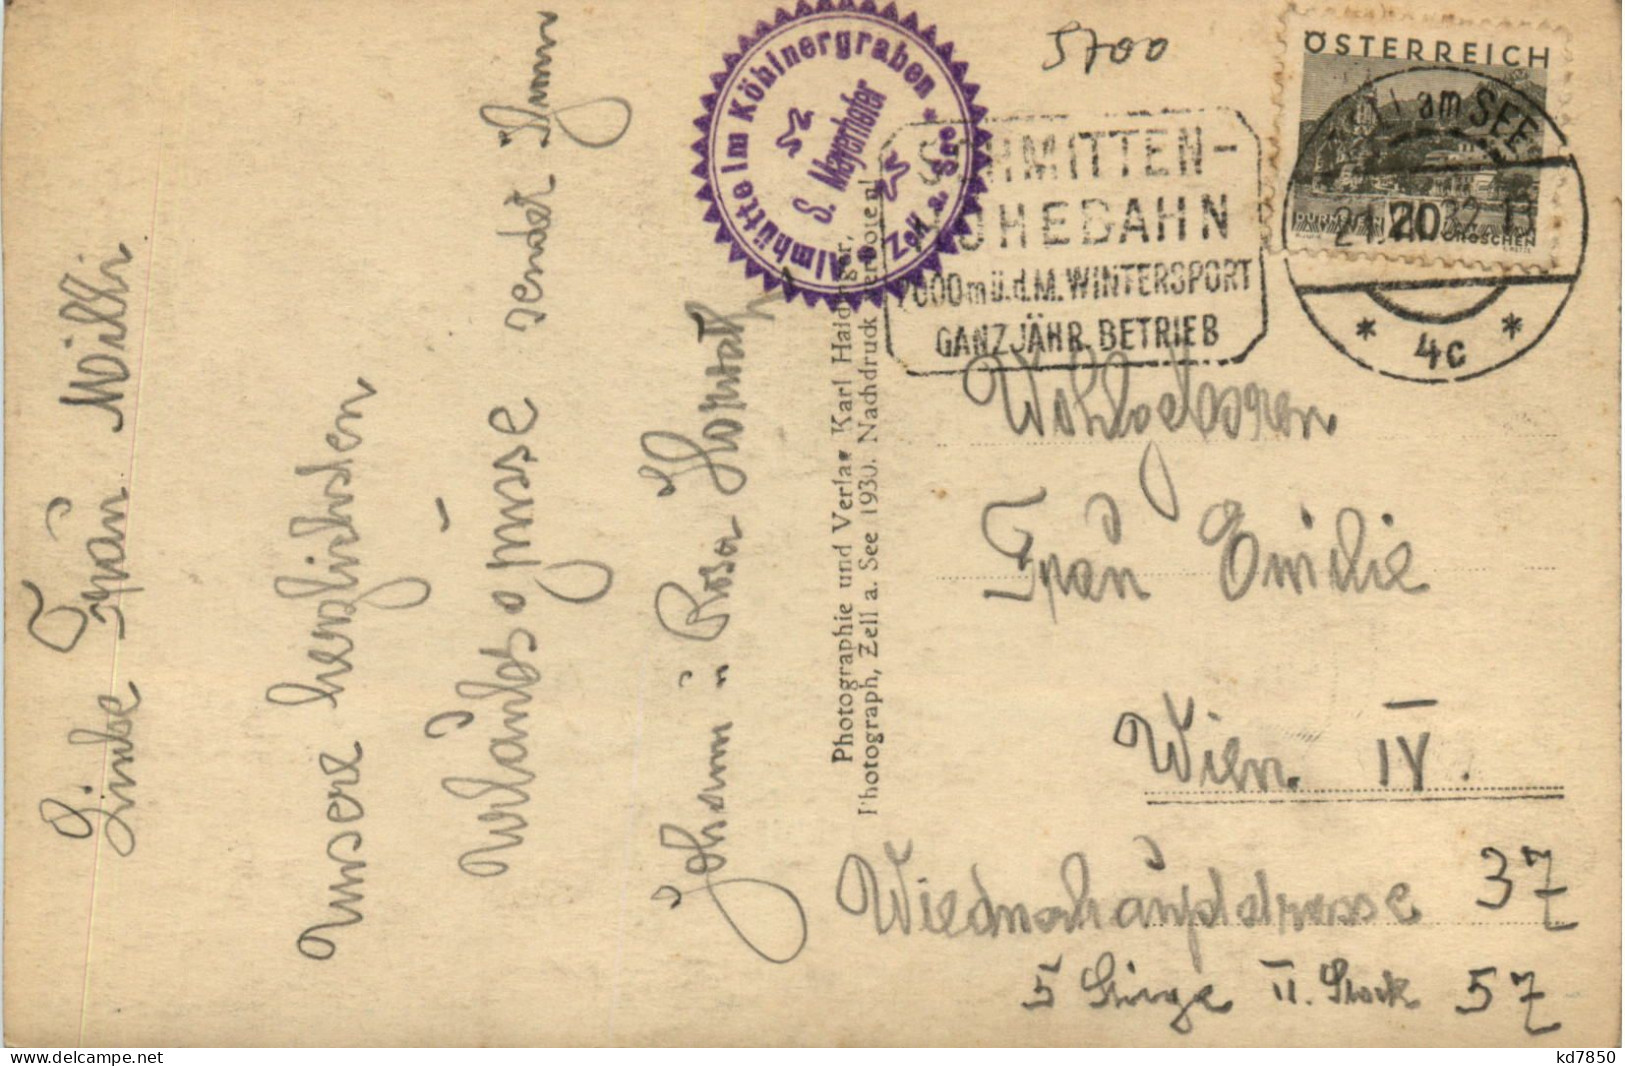 Liebe Fraŭ Willi
Unsere herzlichsten
Urlaŭbsgrüsse sendet Ihnen
Johann u. Rosa Horvath
Almhütte im Köhlnergraben * Zell a. See *
S. Mayerhofer
Photographie und Verlag Karl Haidinger,
Photograph, Zell a. See 1930. Nachdruck verboten!
5700
SCHMITTEN-
HÖHEBAHN
2000m ü.d.M. WINTERSPORT
GANZJÄHR. BETRIEB
ÖSTERREICH
DÜRNSTEIN 20 GROSCHEN
ZELL am SEE
32.13
* 4c *
Wohlgeboren
Fraŭ Emilie
Wien. IV.
Wiednerhaŭptstrasse 37
5 Stiege II. Stock 57
delcampe.net
kd7850